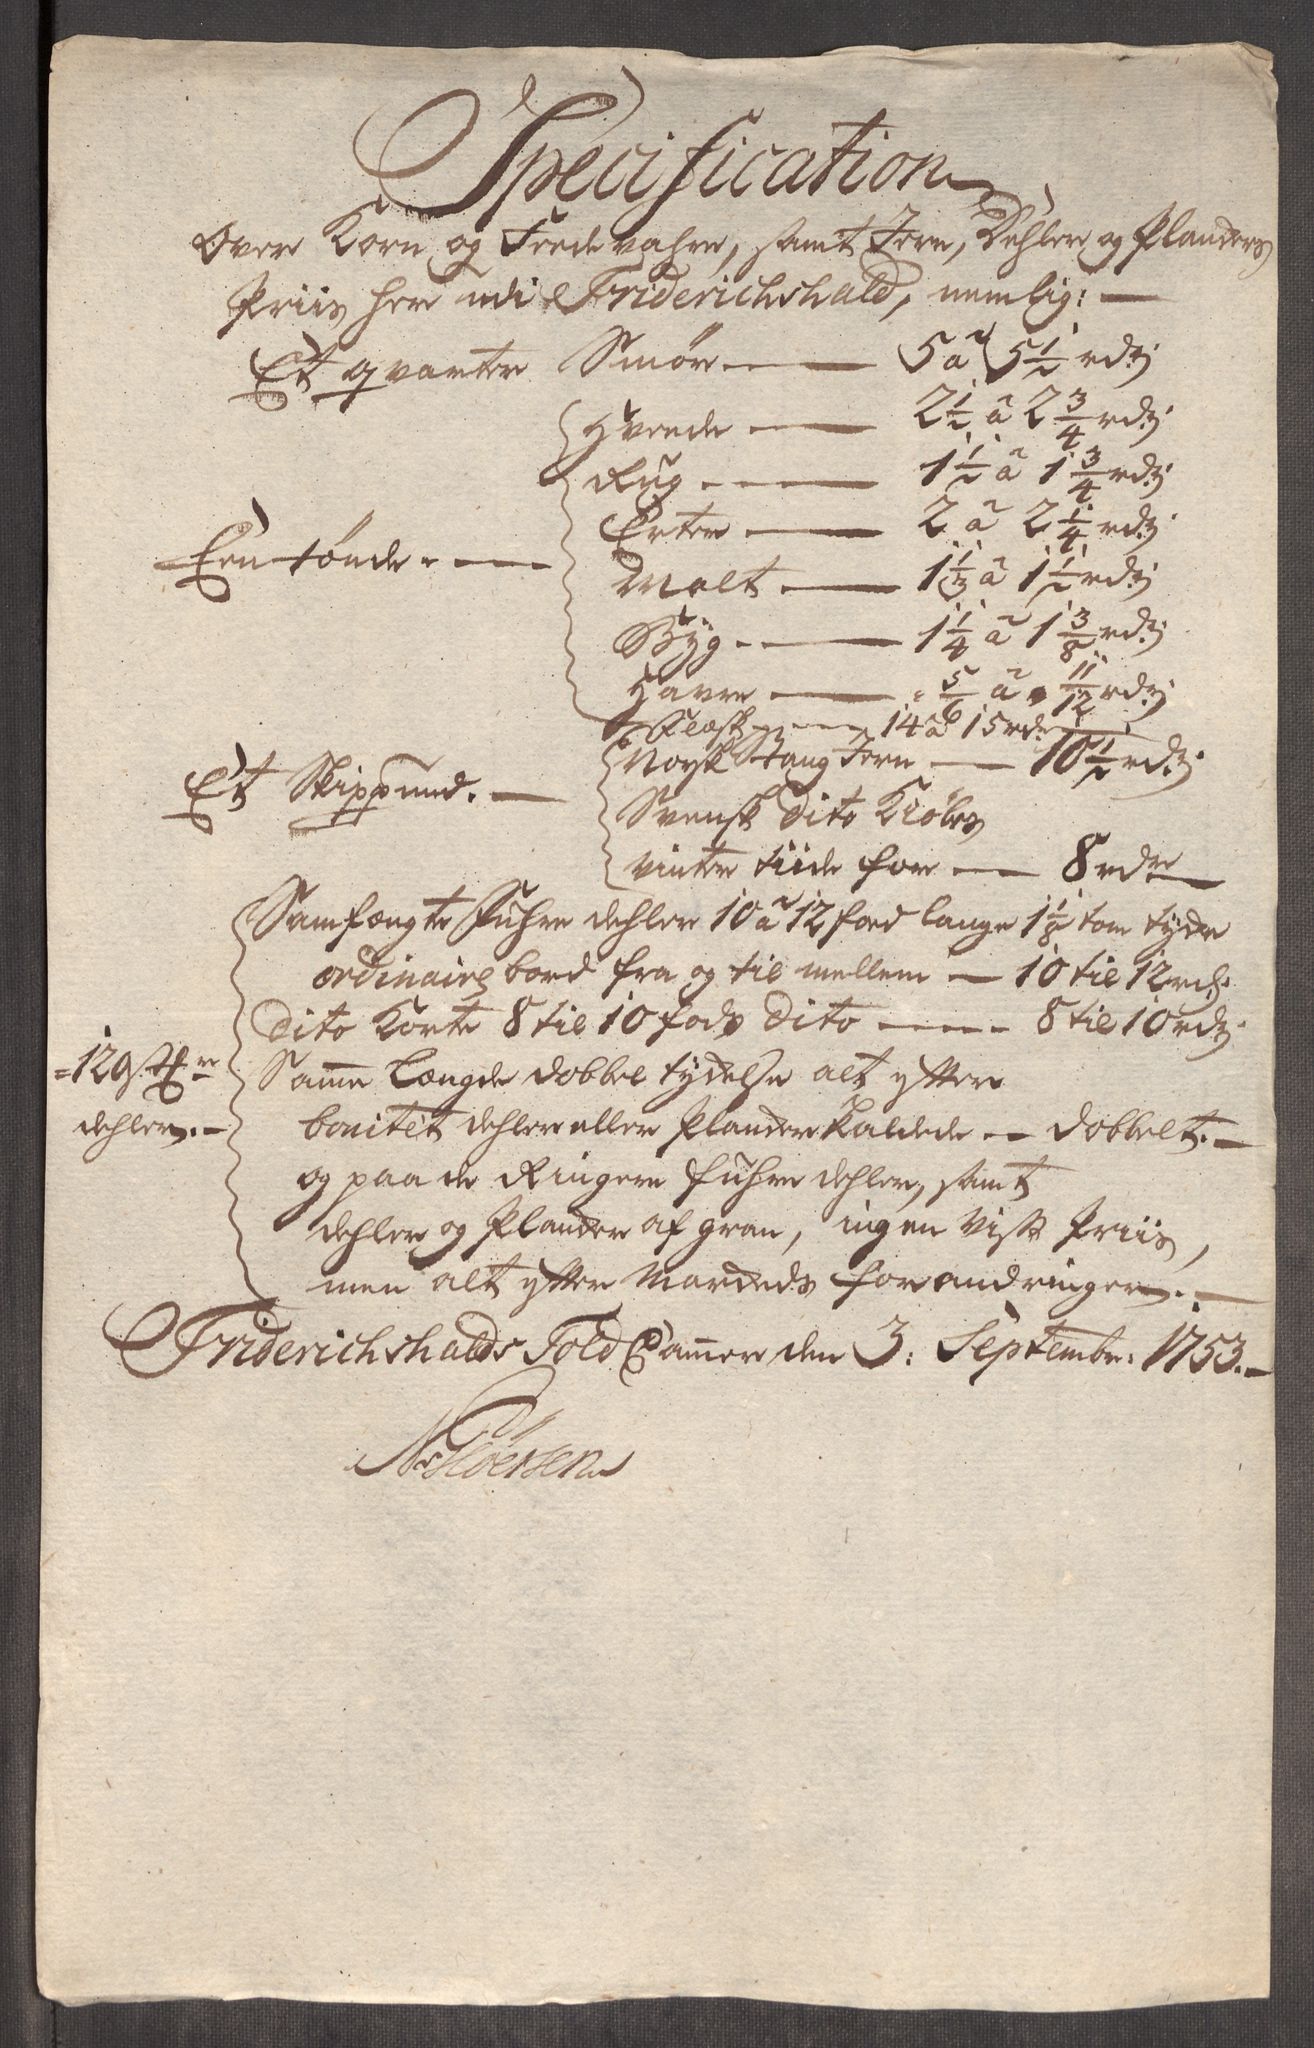 Specification
Over Korn og Feede vahre, samt Jern, Dehler og Planckers
Priis her udi Friderichshald, nemlig: —
Et qvarter Smör — 5 à 5 1/2 rd:
Hvede — 2 1/2 à 2 3/4 rd:
Rug — 1 1/2 à 1 3/4 rd:
Erter — 2 à 2 1/4 rd:
Een tönde —
Malt — 1 1/3 à 1 1/2 rd:
Byg — 1 1/4 à 1 3/8 rd:
Havre — 5/6 à 11/12 rd:
Flæsk — 14 à 15 rd:
Norsk Stang Jern — 10 1/2 rd:
Et Skippund. —
Svensk dito Kiöbes
vinter tiide for — 8 rdr
Samfængte Fuhre dehler 10 à 12 foed lange 1 1/8 tom tyde
ordinaire bord fra og til mellem — 10 til 12 rd:
Dito Korte 8 til 10 fods dito — 8 til 10 rd:
= 129 st
dehler. —
Samme Længde dobbel tydelse alt efter
bonitet dehler eller Plancker Kaldede — dobbelt. —
og paa de Ringere fuhre dehler, samt
dehler og Plancker af gran, ingen vis Priis,
men alt efter Marckeds forandringer. —
Friderichshalds Told Cammer den 3: Septembr: 1753. —